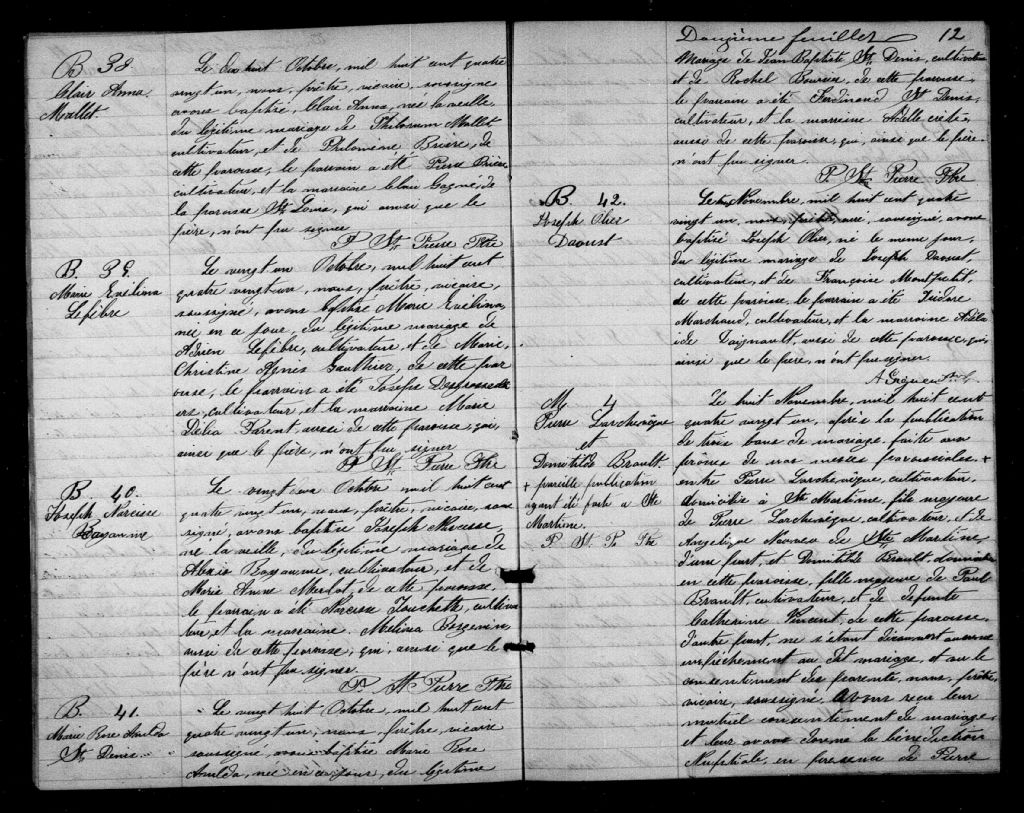 B 38
Clair Anna
Mallet.
Le dix huit Octobre, mil huit cent quatre
vingt un, nous, prêtre, vicaire, soussigné
avons baptisé, Clair Anna, née la veille
du légitime mariage de Philorum Mallet
cultivateur, et de Philomène Brière, de
cette paroisse, le parrain a été Pierre Brière
cultivateur, et la marraine Clair Gagné, de
la paroisse St Louis, qui ainsi que le
père, n'ont pu signer
P. St. Pierre Ptre
B. 39.
Marie Evélina
Lefèbre
Le vingt un Octobre, mil huit cent
quatre vingt un, nous, prêtre, vicaire,
soussigné, avons baptisé Marie Evélina,
née en ce jour, du légitime mariage de
Adrien Lefèbre, cultivateur, et de Marie,
Christine Agnès Gauthier, de cette par
oisse, le parrain a été Joseph
cultivateur, et la marraine Marie
Délia Parent, aussi de cette paroisse, qui,
ainsi que le père, n'ont pu signer
P St. Pierre Ptre
B. 40.
Joseph Narcisse
Bayanme
Le vingt un Octobre mil huit cent
quatre vingt un, nous, prêtre, vicaire, sous
signé, avons baptisé Joseph Narcisse,
né la veille, du légitime mariage de
Alexis Bayanme, cultivateur, et de
Marie Anne Merlot, de cette paroisse,
le parrain a été Narcisse Louchette, cultiva
teur, et la marraine, Melina Bergevin,
aussi de cette paroisse, qui, aussi que le
père n'ont pu signer.
P. St Pierre Ptre
B. 41.
Marie Rose Anilda
St. Denis
Le vingt huit Octobre, mil huit cent
quatre vingt un, nous, prêtre, vicaire
soussigné, avons baptisé Marie Rose
Anilda, née en ce jour, du légitime
Douzième feuillet 12
Mariage de Jean Baptiste St. Denis, cultivateur
et de Rachel, de cette paroisse
le parrain a été Ferdinand St Denis,
cultivateur, et la marraine Adelle
aussi de cette paroisse, qui, ainsi que le père
n'ont pu signer.
P St. Pierre Ptre
B. 42.
Joseph Olier
Daoust
Le Novembre, mil huit cent quatre
vingt un, nous, prêtre, curé, soussigné, avons
baptisé Joseph Olier, né le même jour,
du légitime mariage de Joseph Daoust,
cultivateur, et de Françoise Montpetit,
de cette paroisse, le parrain a été Isidore
Marchand, cultivateur, et la marraine Adéla
ide Daignault, aussi de cette paroisse, qui,
ainsi que le père, n'ont pu signer.
M. 4
Pierre Larchevêque
et
Domitilde Brault.
+ pareille publication
ayant été faite à Ste
Martine.
P. St. P. Ptre
Le huit Novembre, mil huit cent
quatre vingt un, après la publication
de trois bans de mariage, faite aux
prônes de nos messes paroissiales, +
entre Pierre Larchevêque, cultivateur,
domicilié à Ste Martine, fils majeur
de Pierre Larchevêque, cultivateur, et de
Angélique de Ste Martine,
d'une part, et Domitilde Brault, domiciliée
en cette paroisse, fille majeure de Paul
Brault, cultivateur, et de défunte
Catherine Vincent, de cette paroisse,
d'autre part, ne s'étant découvert aucun
empêchement au dit mariage, et au le
consentement des parents, nous, prêtre,
vicaire, soussigné, avons reçu leur
mutuel consentement de mariage,
et leur avons donné la bénédiction
Nuptiale, en présence de Pierre